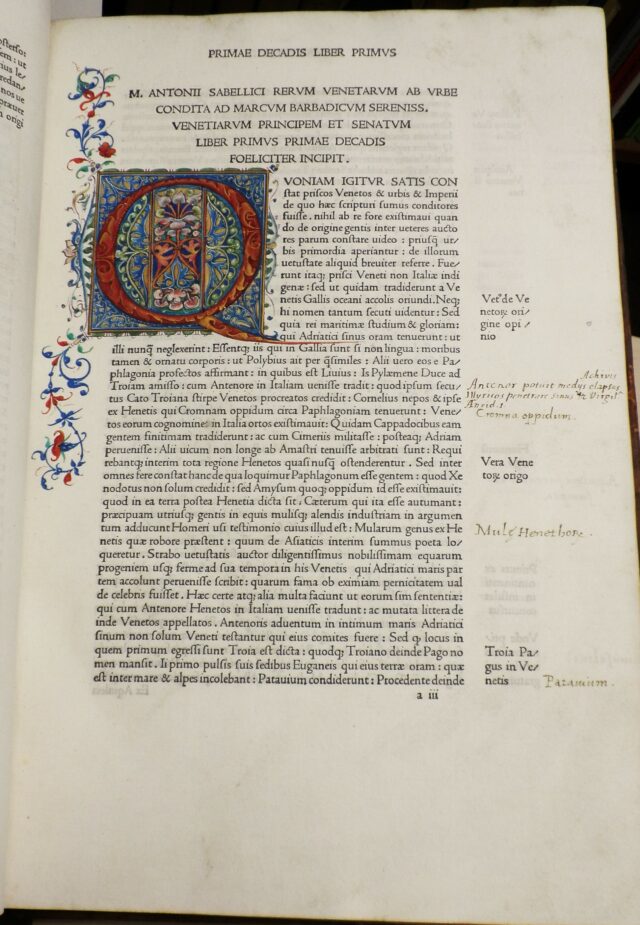 PRIMAE DECADIS LIBER PRIMVS
M. ANTONII SABELLICI RERVM VENETARVM AB VRBE
CONDITA AD MARCVM BARBADICVM SERENISS.
VENETIARVM PRINCIPEM ET SENATVM
LIBER PRIMVS PRIMAE DECADIS
FOELICITER INCIPIT.
QVONIAM IGITVR SATIS CON
stat priscos Venetos & urbis & Imperii
de quo hæc scripturi sumus conditores
fuisse. nihil ab re fore existimaui quan
do de origine gentis inter ueteres aucto
res parum constare uideo : priusq̃ ur/
bis primordia aperiantur : de illorum
uetustate aliquid breuiter referre. Fue/
runt itaq; prisci Veneti non Italiæ indi
genæ : sed ut quidam tradiderunt a Ve
netis Gallis oceani accolis oriundi. Neq;
hi nomen tantum secuti uidentur : Sed
quia rei maritimæ studium & gloriam :
qui Adriatici sinus oram tenuerunt : ut
illi nunq̃ neglexerint : Essentq; iis qui in Gallia sunt si non lingua : moribus
tamen & ornatu corporis : ut Polybius ait per q̃similes : Alii uero eos e Pa/
phlagonia profectos affirmant : in quibus est Liuius : Is Pylæmene Duce ad
Troiam amisso : cum Antenore in Italiam uenisse tradit : quod ipsum secu/
tus Cato Troiana stirpe Venetos procreatos credidit : Cornelius nepos & ipse
ex Henetis qui Cromnam oppidum circa Paphlagoniam tenuerunt : Vene/
tos eorum cognomines in Italia ortos existimauit : Quidam Cappadocibus eam
gentem finitimam tradiderunt : ac cum Cimeriis militasse : posteaq; Adriam
peruenisse : Alii uicum non longe ab Amastri tenuisse arbitrati sunt : Requi
rebantq; interim tota regione Henetos quasi nusq̃ ostenderentur. Sed inter
omnes fere constat hanc de qua loquimur Paphlagonum esse gentem : quod Xe
nodotus non solum credidit : sed Amysum quoq; oppidum id esse existimauit :
quod in ea terra postea Henetia dicta sit. Cæterum qui ita esse autumant :
præcipuam utriusq; gentis in equis mulisq; alendis industriam in argumen
tum adducunt Homeri usi testimonio cuius illud est : Mularum genus ex He
netis quæ robore præstent : quum de Asiaticis interim summus poeta lo/
queretur. Strabo uetustatis auctor diligentissimus nobilissimam equarum
progeniem usq; ferme ad sua tempora in his Venetis qui Adriatici maris par
tem accolunt peruenisse scribit : quarum fama ob eximiam pernicitatem ual
de celebris fuisset. Hæc certe atq; alia multa faciunt ut eorum sim sententiæ :
qui cum Antenore Henetos in Italiam uenisse tradunt : ac mutata littera de
inde Venetos appellatos. Antenoris aduentum in intimum maris Adriatici
sinum non solum Veneti testantur qui eius comites fuere : Sed q̃ locus in
quem primum egressi sunt Troia est dicta : quodq; Troiano deinde Pago no
men mansit. Ii primo pulsis suis sedibus Euganeis qui eius terræ oram : quæ
est inter mare & alpes incolebant : Patauium condiderunt : Procedente deinde
a iii
Veteꝝ de Ve
netoꝝ ori
gine opi/
nio
Achivis
Antenor potuit medijs elapsus
Illyricos penetrare sinus Virgil
Aneid. 1
Cromna oppidum.
Vera Vene
toꝝ origo
Mulȩ Henethorꝝ.
Troia Pa/
gus in Ve/
netis
Patauium.